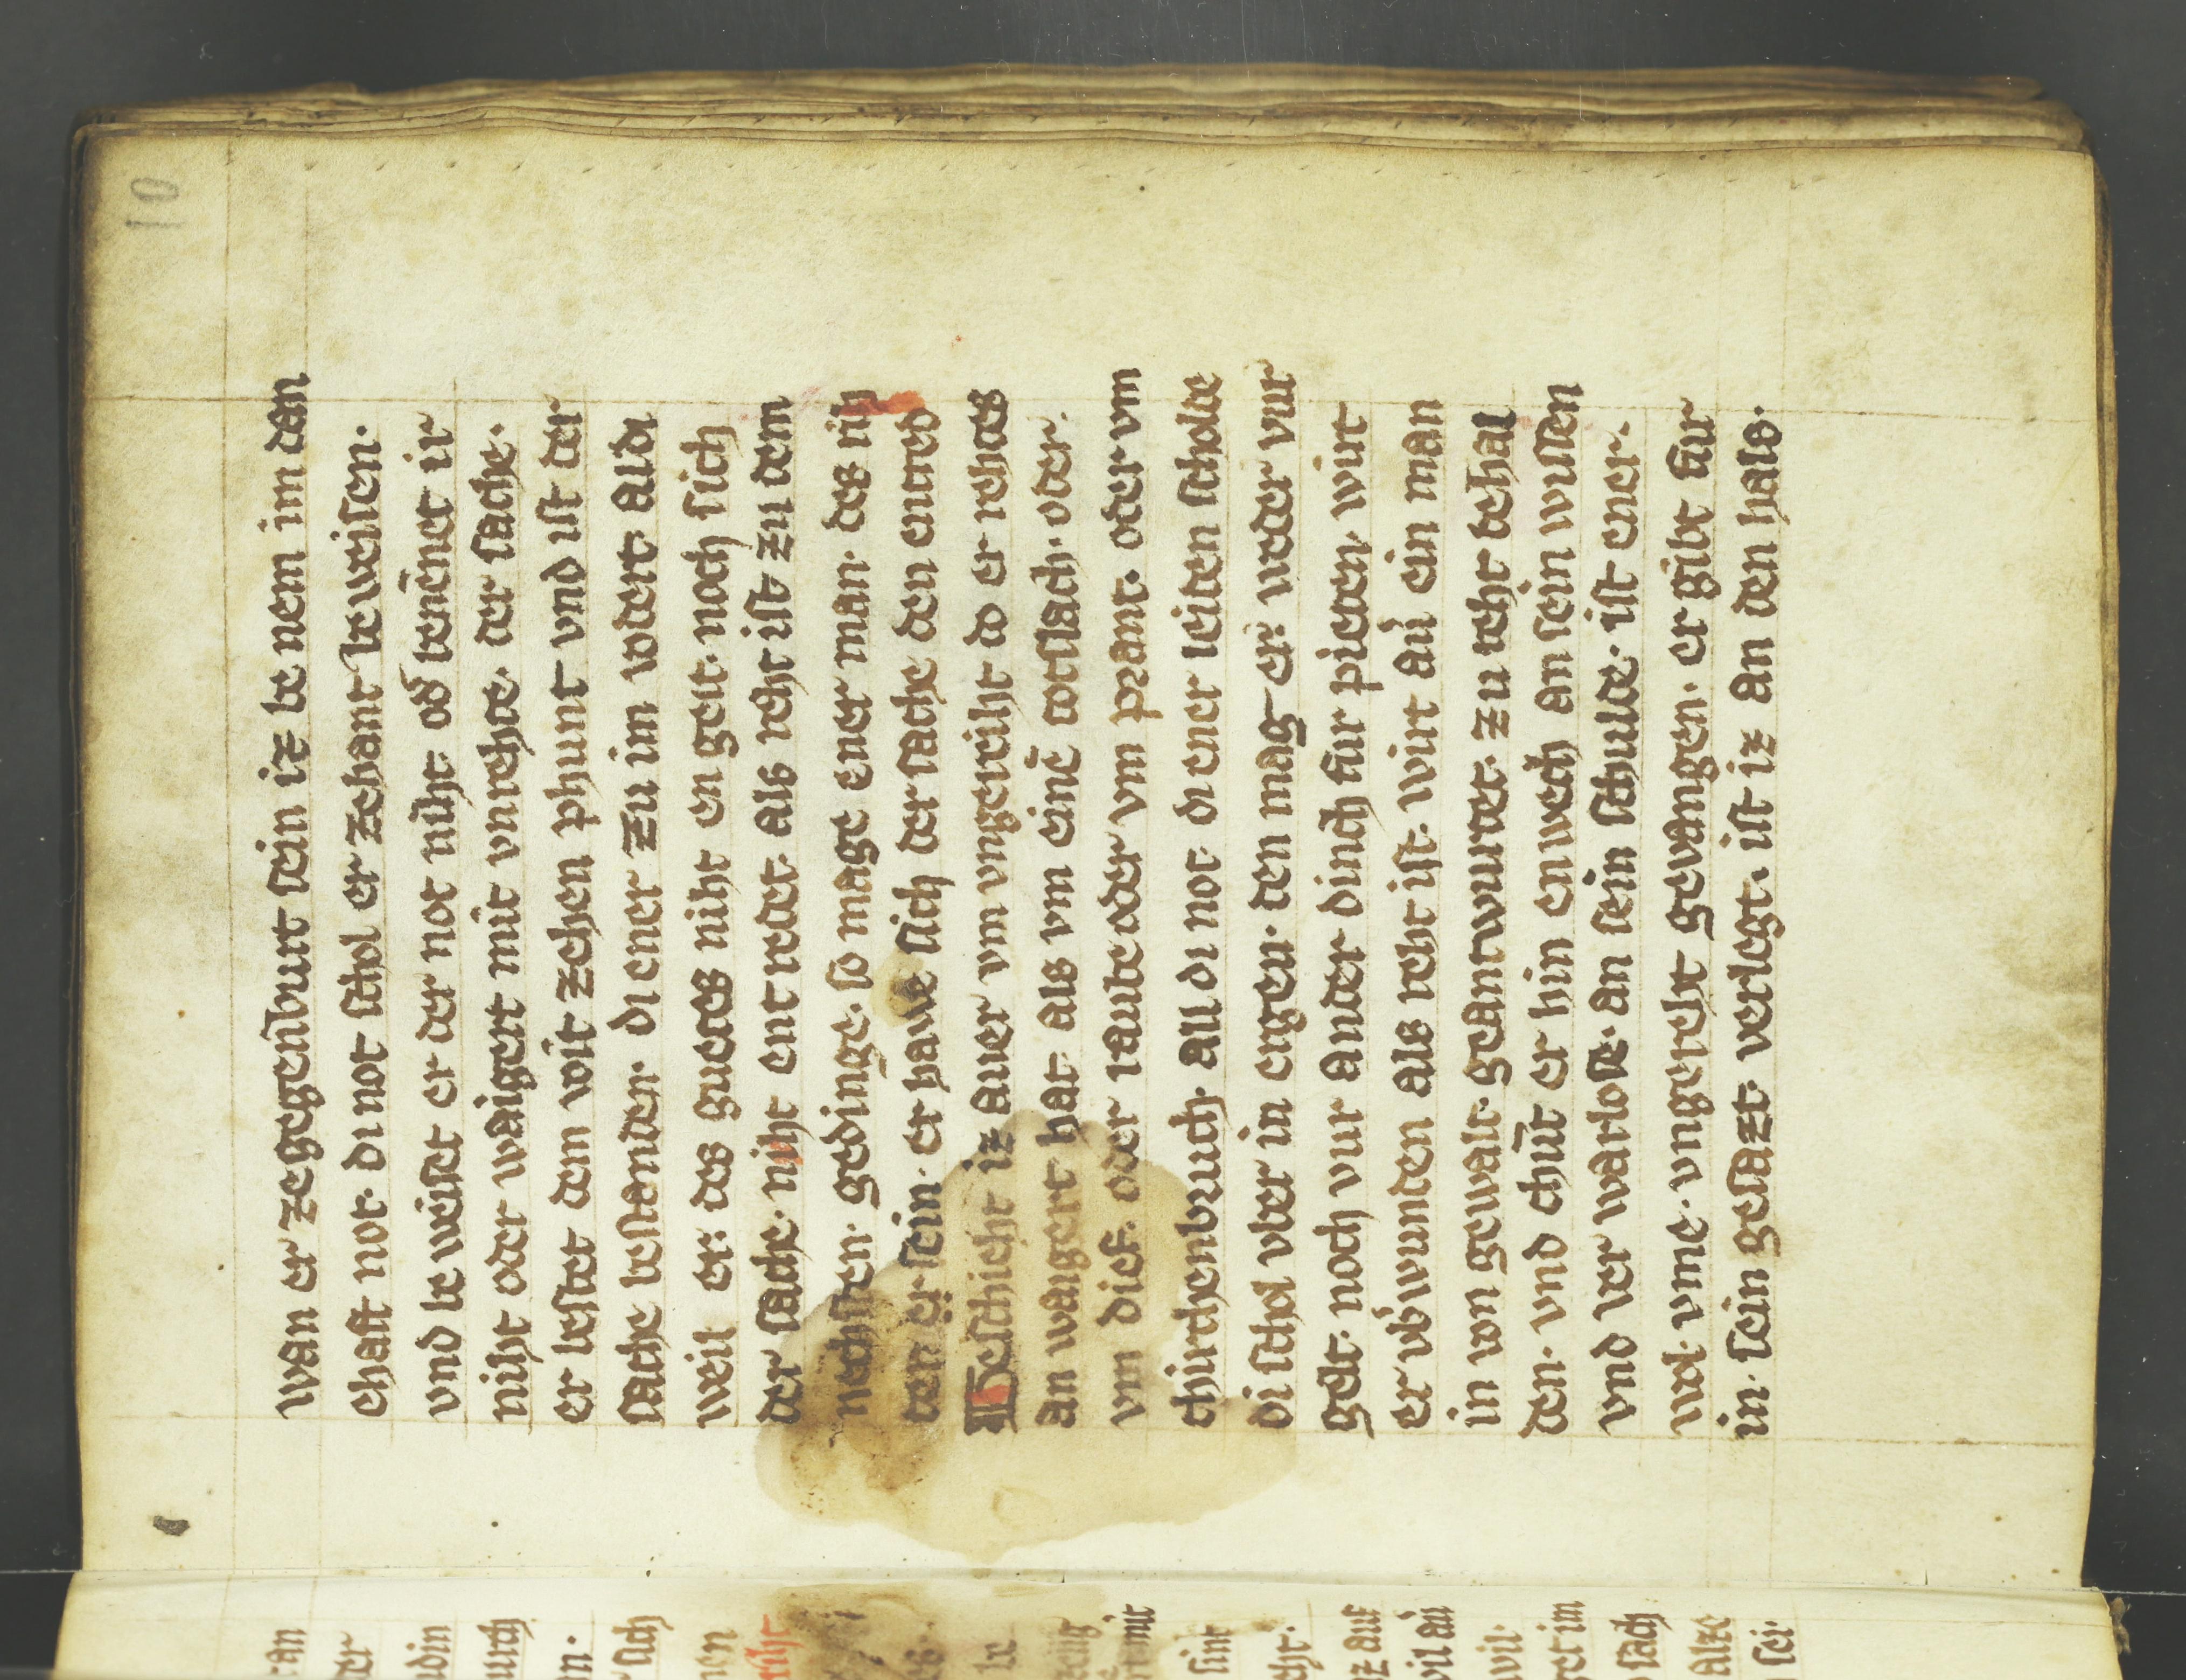 10
wan er ze gegenburt sein iz be nem im dan
ehaft not. di not schol er zehant beweisen.
vnd be weiset er der not niht. od benēnet ir
niht oder waigert mit vnrehte. der sache.
er bestet dem wit zehen phunt vnd ist der
sache bestanden. di ener zu im vodert. aldi
weil er. des gutes niht en geit. noch sich
der sache. niht ent redet. als reht ist zu dem
nechsten. gedinge. so mage ener man. des rih
ten er sein. er hawe sich der sache den entred
Geschicht iz auer vm vngeriht do er rehtes
an waigert hat. als vm einē totslach. oder.
vm dief. oder raube oder vm prant. oder vm
chirchenbruch. all di not. di ener leiten scholde
di schol vber in ergen. den mag er. weder vur
gelt. noch vur ander dinch fur pieten. wirt
er vb'wunden als reht ist. wirt au ein man
in von gewalt. geantwurtet. zu reht behal
den. vnd chūt er hin enwech an sein wissen
vnd ver warlost. an sein schulde. ist ener.
wol. vme. vngereht gevangen. er gibt fur
in. sein gesazt. verlegt. ist iz an den hals.